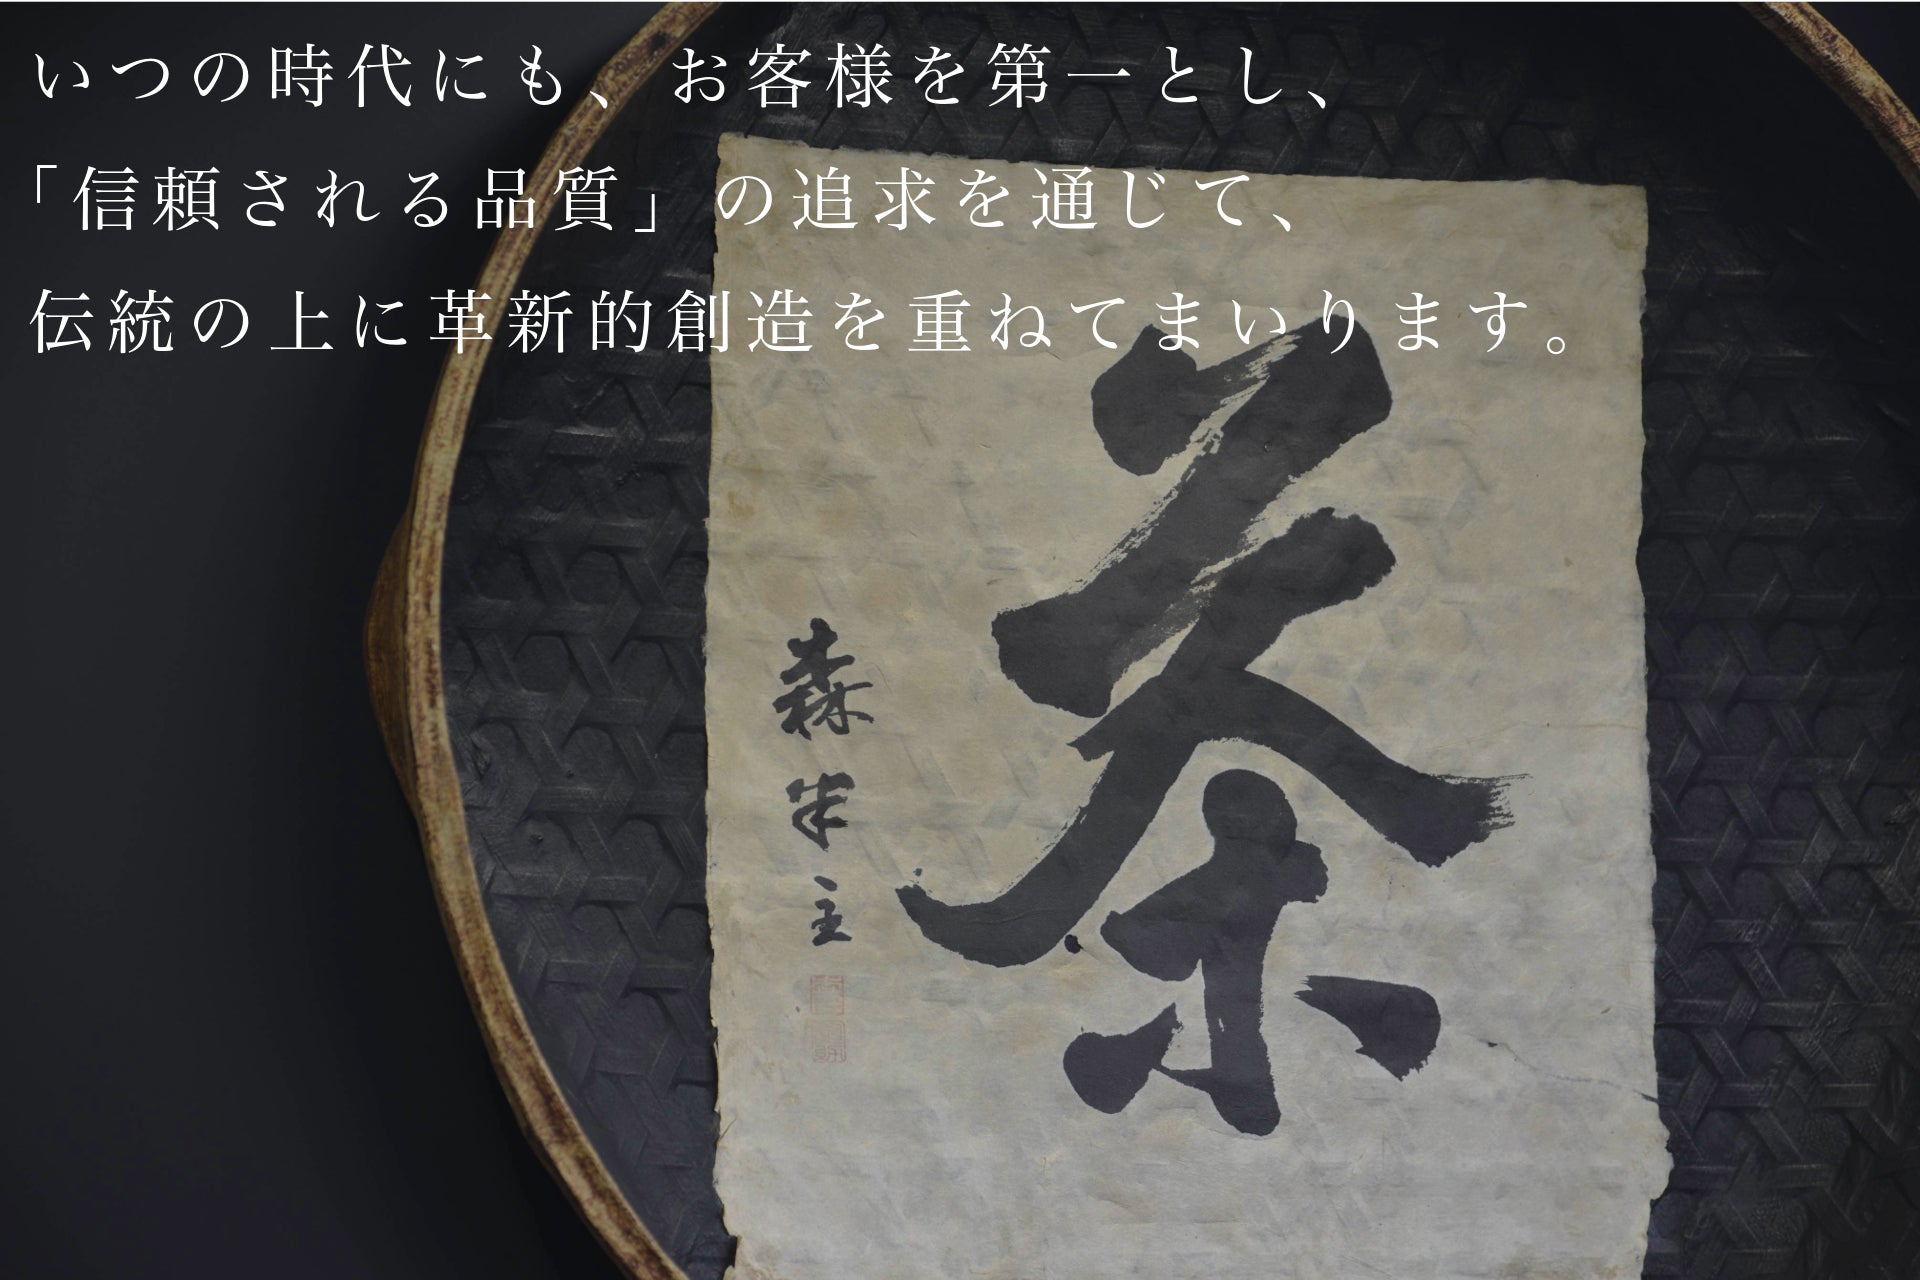 いつの時代にも、お客様を第一とし、
「信頼される品質」の追求を通じて、
伝統の上に革新的創造を重ねてまいります。
茶
森半主